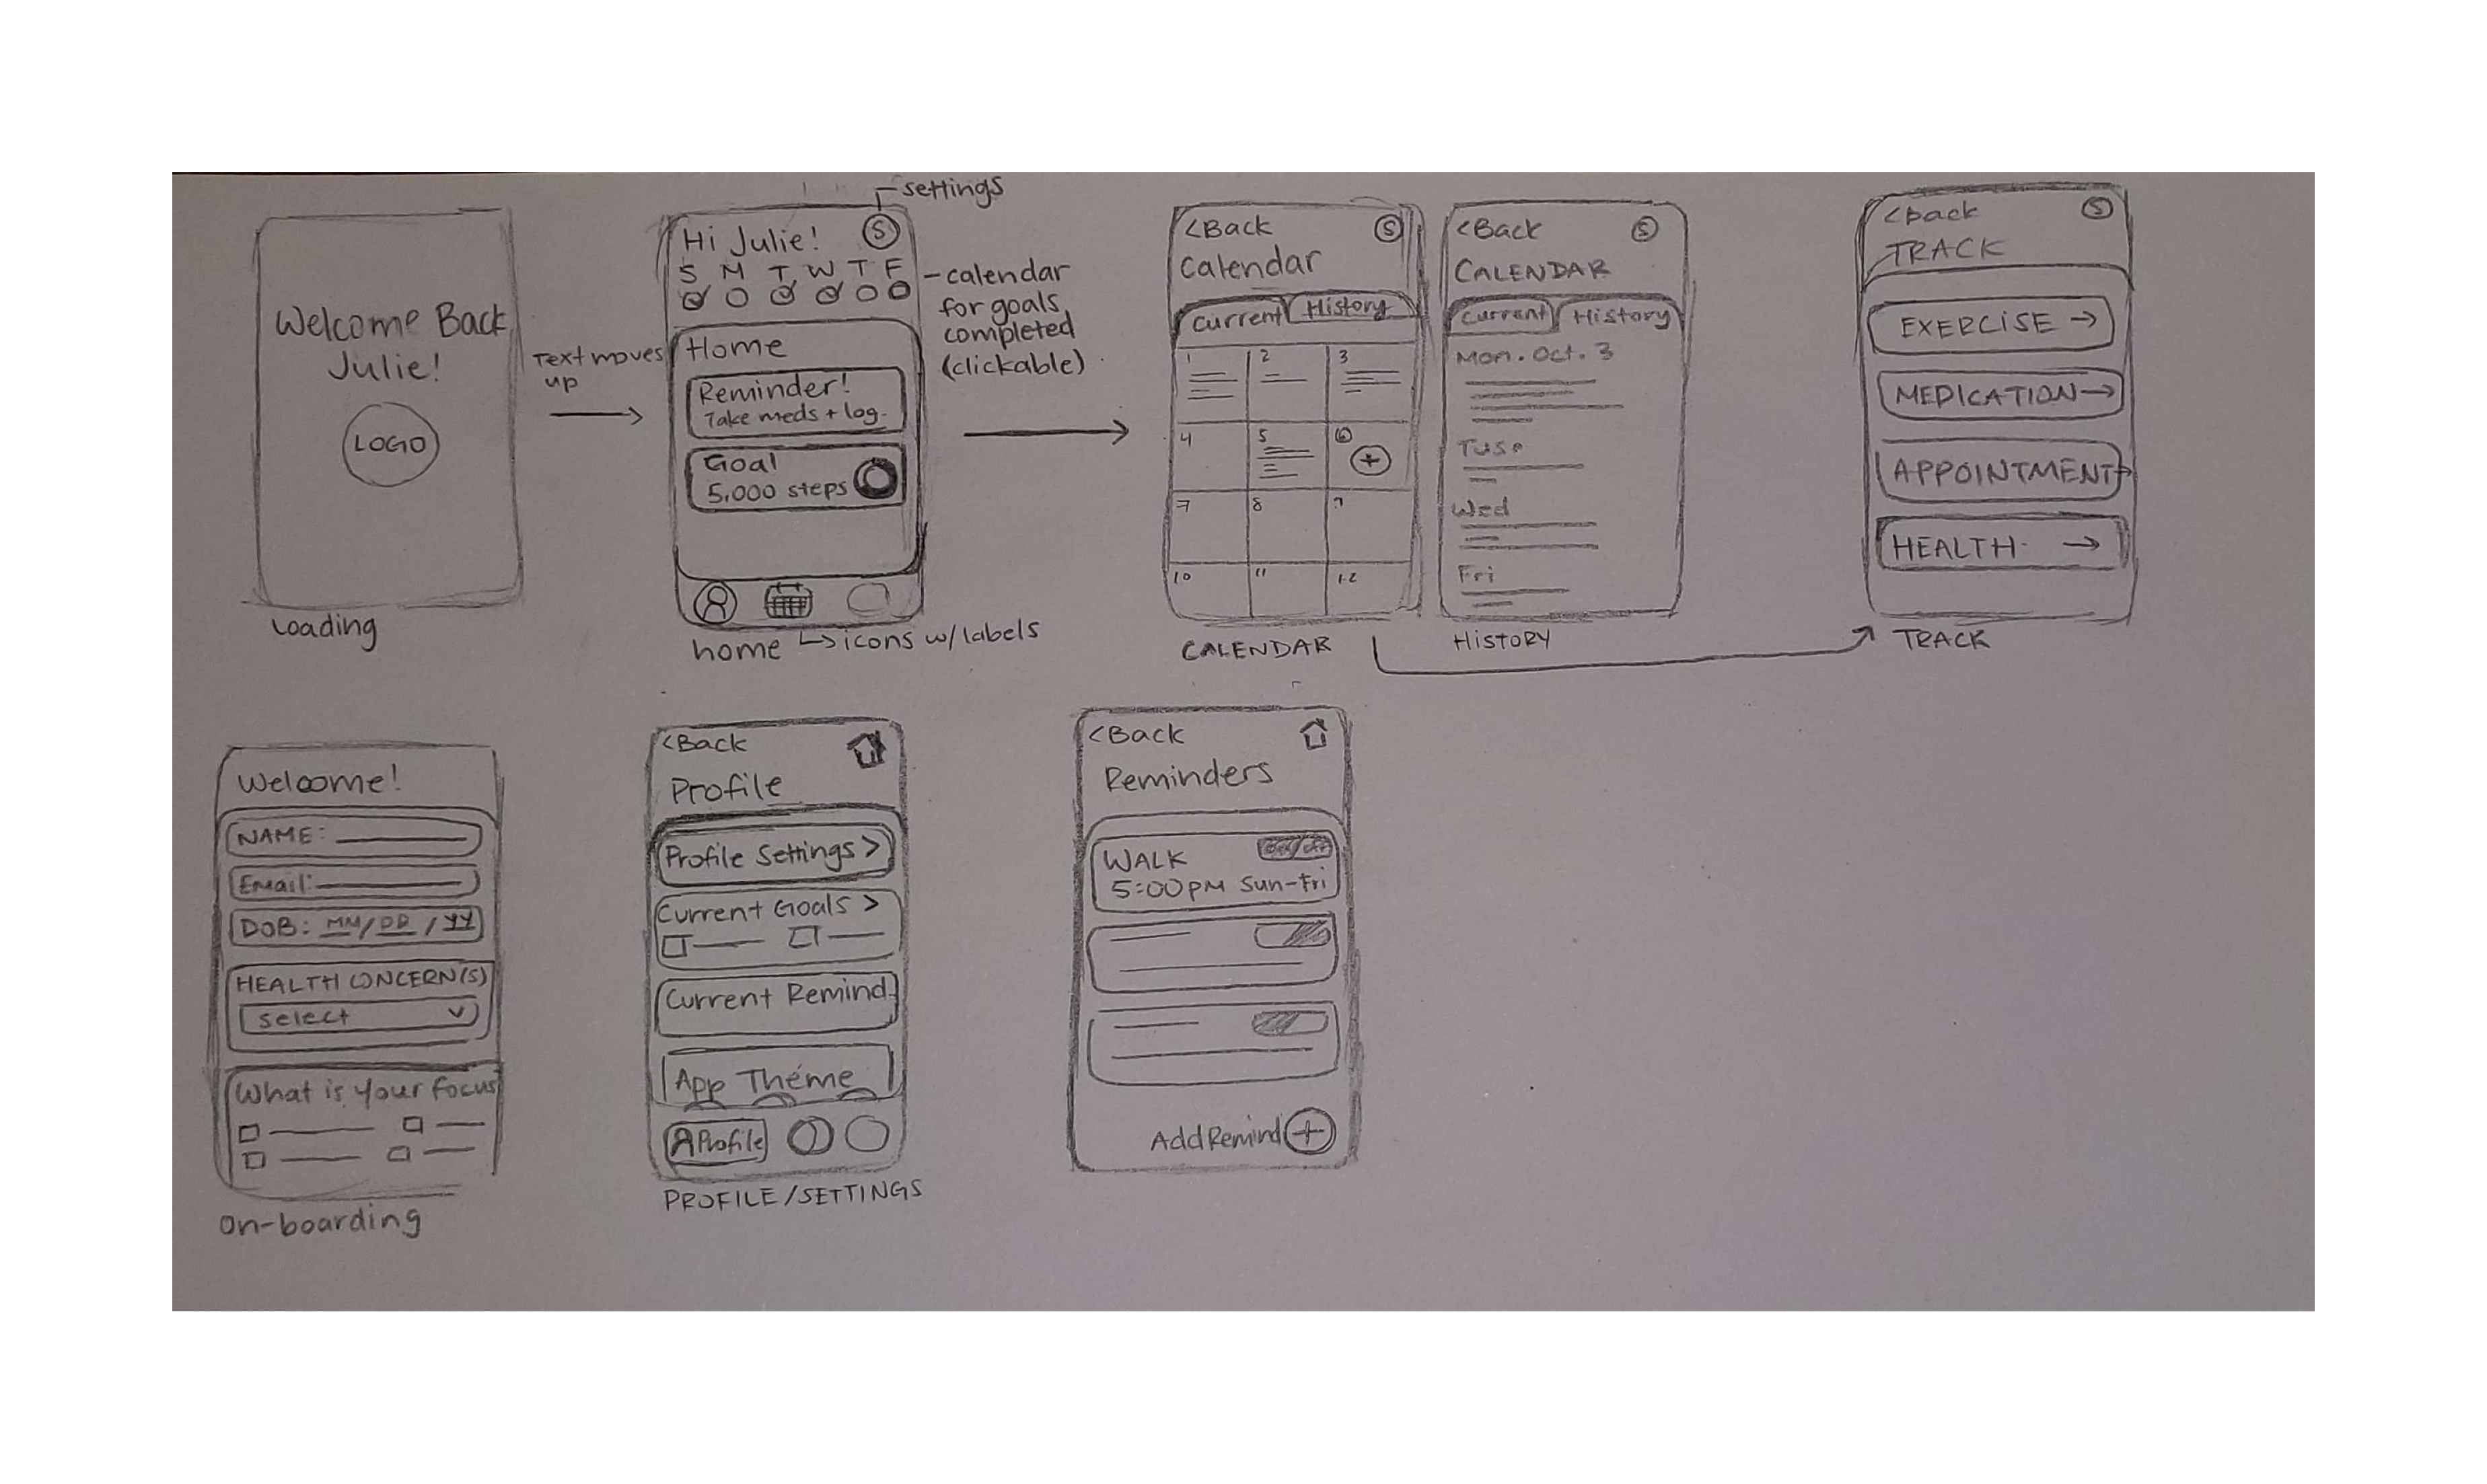 settings
Welcome Back
Julie!
LOGO
Loading
Text moves
up
Hi Julie!
S
S M T W T F
Home
Reminder!
Take meds + log.
Goal
5,000 steps
home
icons w/labels
-calendar
for goals
completed
(clickable)
<Back
S
Calendar
Current
History
1 2 3
4 5 6
+
7 8 9
10 11 12
CALENDAR
<Back
S
CALENDAR
Current
History
Mon. Oct. 3
Tuse
Wed
Fri
HISTORY
<back
S
TRACK
EXERCISE →
MEDICATION →
APPOINTMENT →
HEALTH →
TRACK
Welcome!
NAME:
Email:
DOB: MM/DD/YY
HEALTH CONCERN(S)
select
What is your focus
On-boarding
<Back
Profile
Profile Settings >
Current Goals >
Current Remind.
App Theme
Profile
PROFILE/SETTINGS
<Back
Reminders
WALK
5:00PM Sun-Fri
Add Remind +